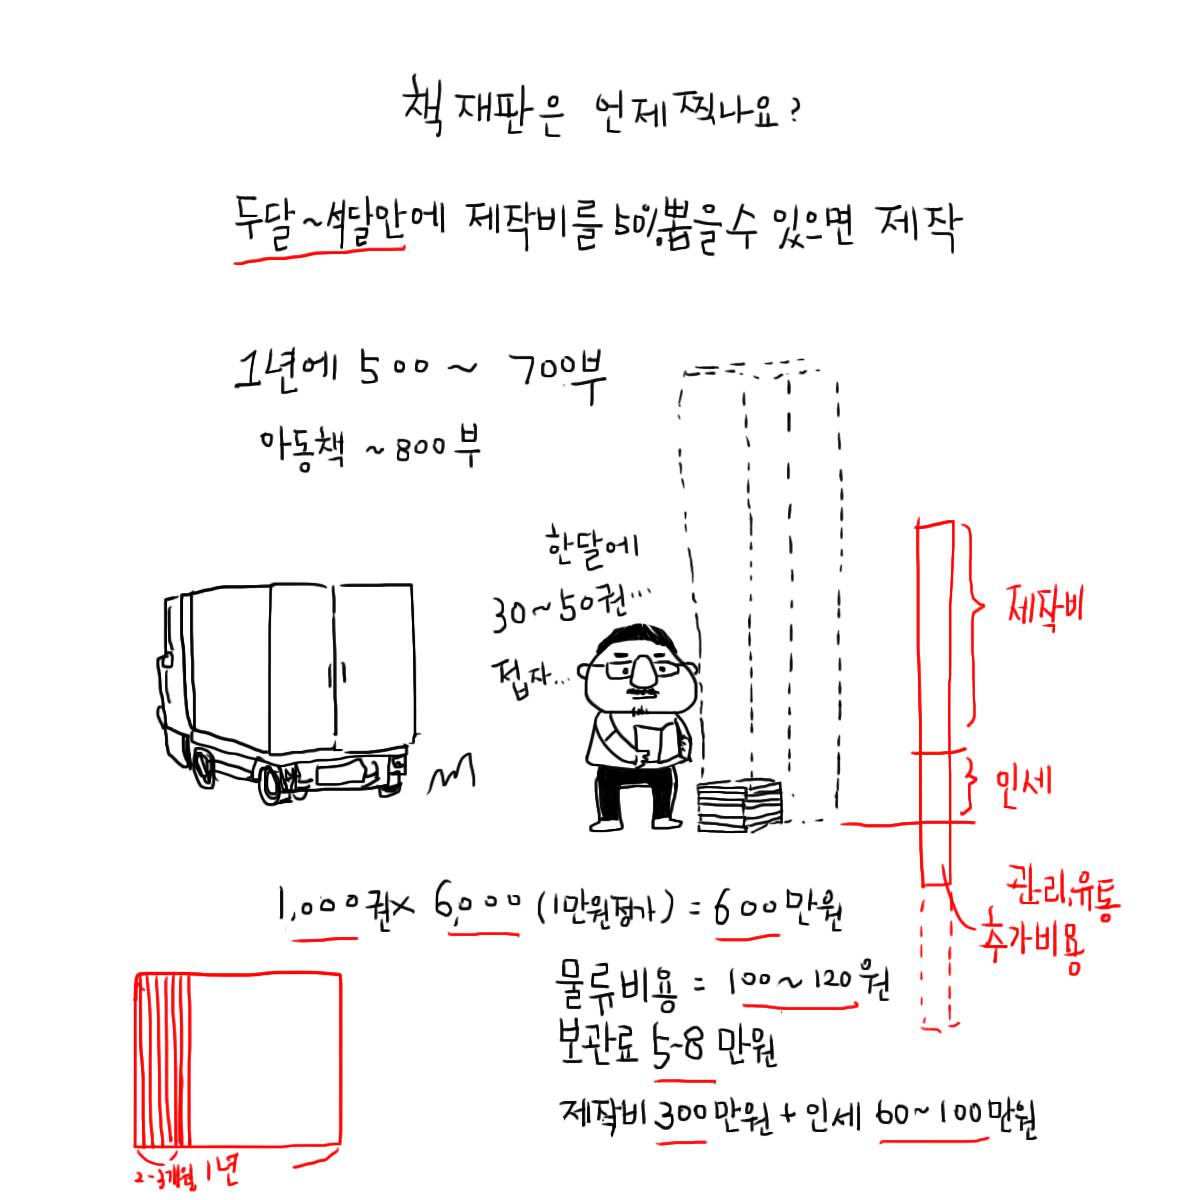 책 재판은 언제 찍나요?
두달~석달안에 제작비를 50% 뽑을 수 있으면 제작
1년에 500 ~ 700부
아동책 ~800부
한달에
30~50권...
접자...
제작비
인세
관리, 유통
추가비용
1,000권 x 6,000 (1만원정가) = 600만원
물류비용 = 100~120원
보관료 5-8만원
제작비 300만원 + 인세 60~100만원
2-3개월, 1년